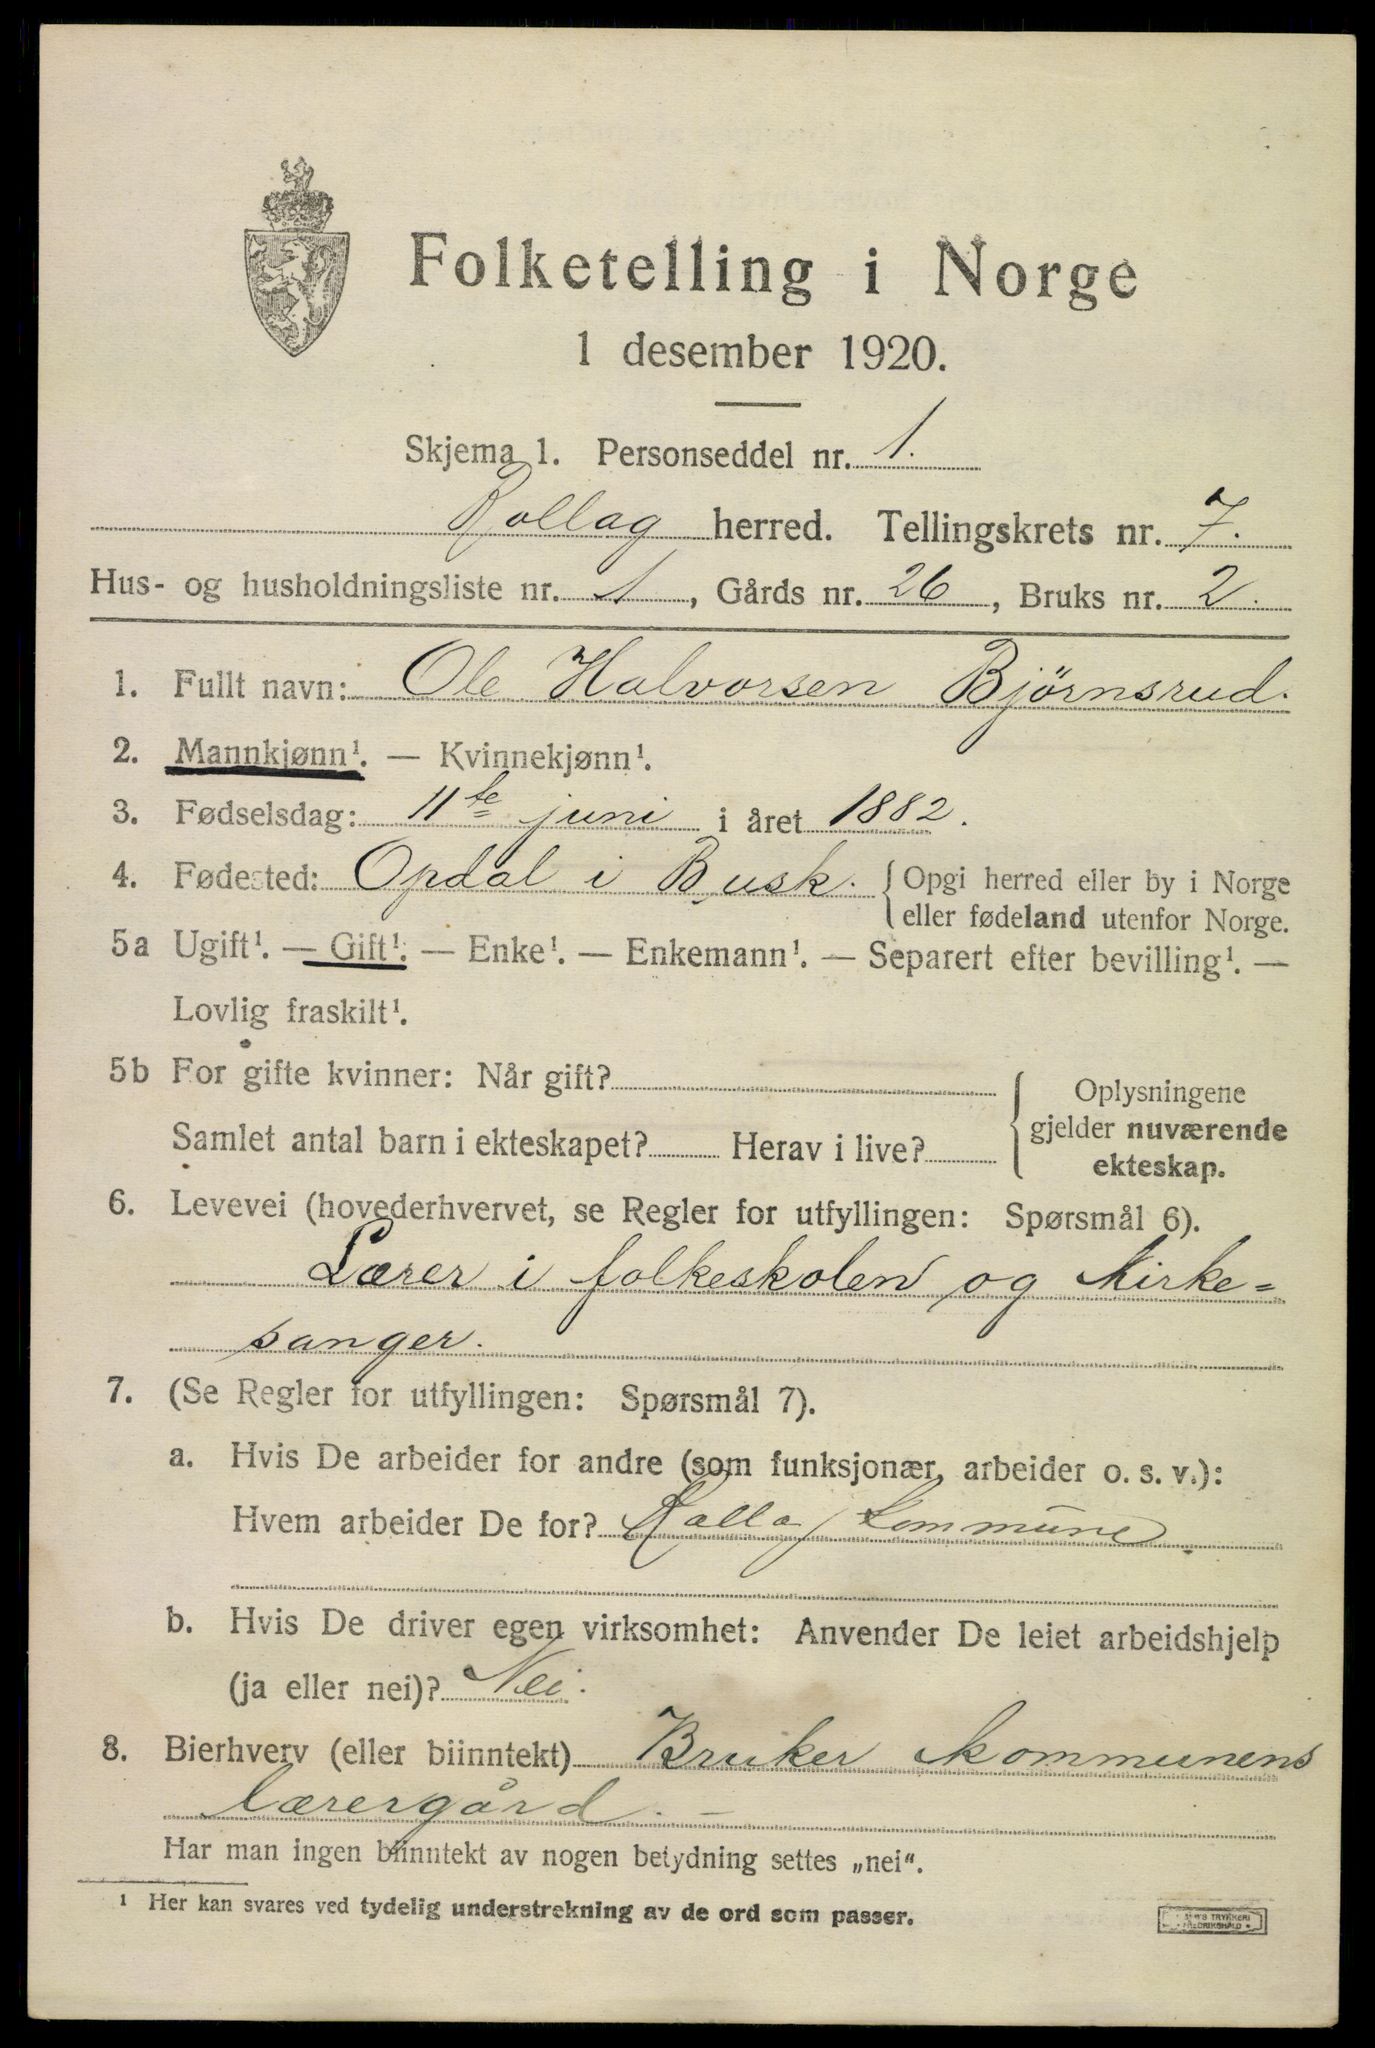 Folketelling i Norge
1 desember 1920.
Skjema 1. Personseddel nr. 1.
Rollag herred. Tellingskrets nr. 7.
Hus- og husholdningsliste nr. 1, Gårds nr. 26, Bruks nr. 2.
1. Fullt navn: Ole Halvorsen Bjørnsrud.
2. Mannkjønn¹. — Kvinnekjønn¹.
3. Fødselsdag: 11te juni i året 1882.
4. Fødested: Opdal i Busk. { Opgi herred eller by i Norge
eller fødeland utenfor Norge.
5a Ugift¹. — Gift¹. — Enke¹. — Enkemann¹. — Separert efter bevilling¹. —
Lovlig fraskilt¹.
5b For gifte kvinner: Når gift?
Samlet antal barn i ekteskapet? Herav i live?
Oplysningene
gjelder nuværende
ekteskap.
6. Levevei (hovederhvervet, se Regler for utfyllingen: Spørsmål 6).
Lærer i folkeskolen og kirke=
sanger.
7. (Se Regler for utfyllingen: Spørsmål 7).
a. Hvis De arbeider for andre (som funksjonær, arbeider o. s. v.):
Hvem arbeider De for? Rollag kommune
b. Hvis De driver egen virksomhet: Anvender De leiet arbeidshjelp
(ja eller nei)? Nei.
8. Bierhverv (eller biinntekt) Bruker kommunens
lærergård. —
Har man ingen biinntekt av nogen betydning settes „nei“.
¹ Her kan svares ved tydelig understrekning av de ord som passer.
TRYKKERI
FREDRIKSHALD